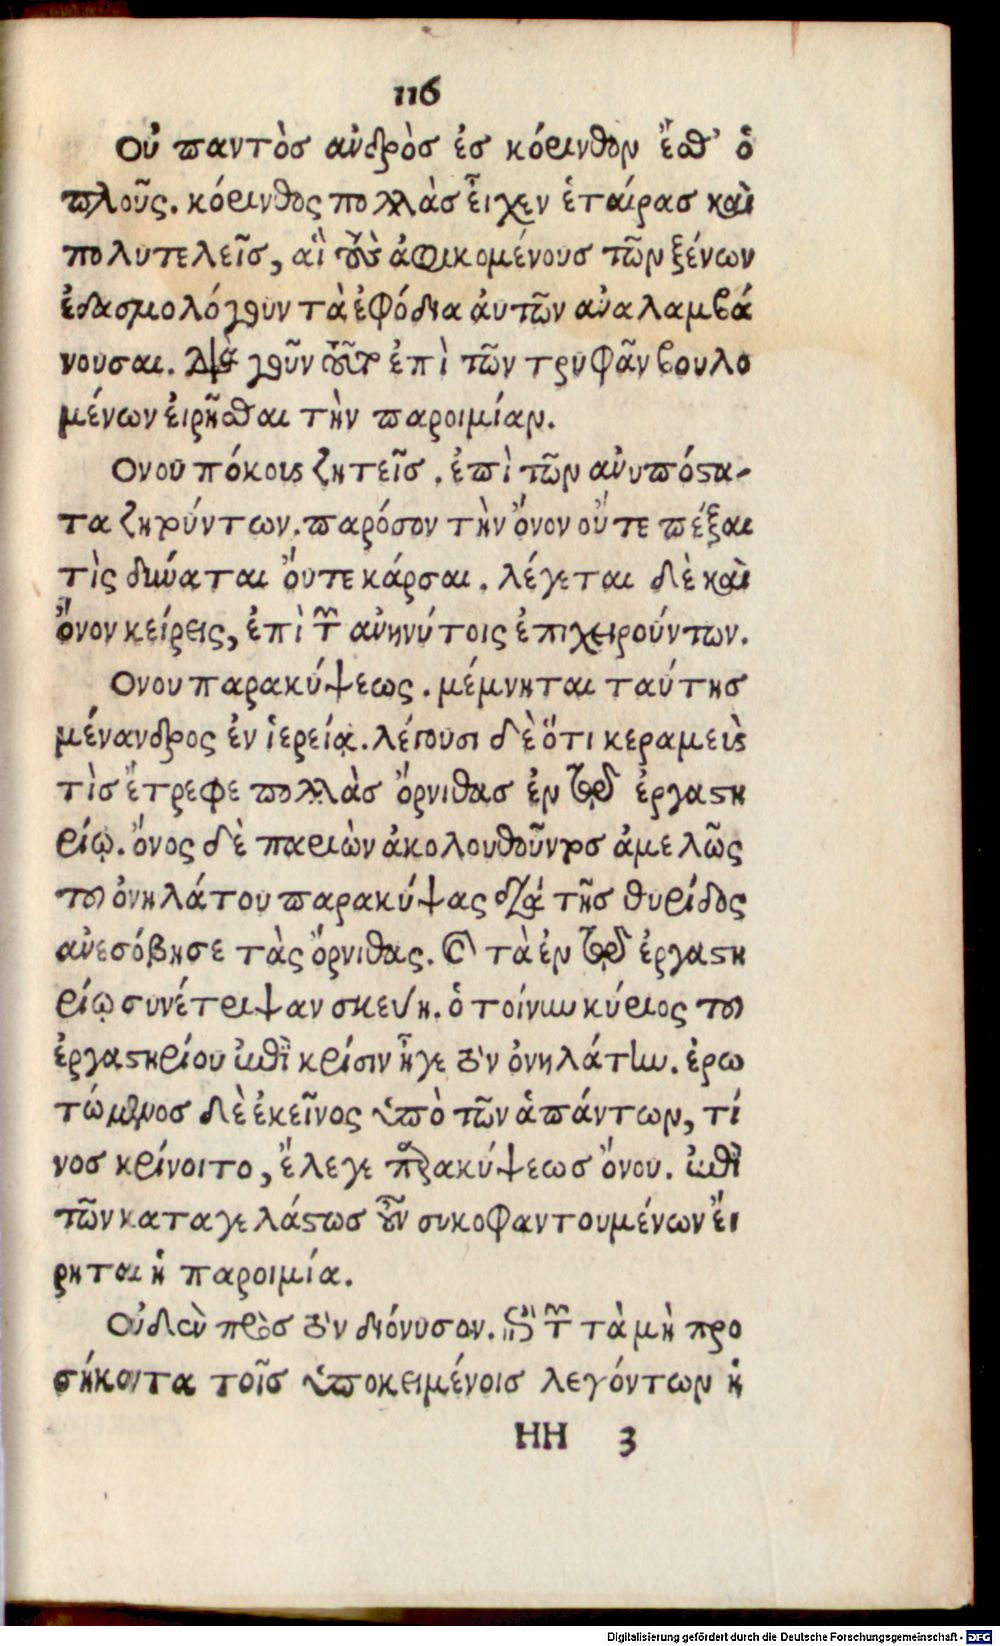 116
Οὐ παντὸσ ἀνδρὸσ ἐσ κόρινθον ἔσθ' ὁ
πλοῦς. κόρινθος πολλὰσ εἶχεν ἑταίρασ καὶ
πολυτελεῖσ, αἳ τοὺς ἀφικομένουσ τῶν ξένων
ἐδασμολόγουν τὰ ἐφόδια ἀυτῶν ἀναλαμβά
νουσαι. διὰ γοῦν τοῦτο ἐπὶ τῶν τρυφᾶν βουλο
μένων εἰρῆσθαι τὴν παροιμίαν.
Ονου πόκους ζητεῖσ. ἐπὶ τῶν ἀνυπόστα-
τα ζητούντων. παρόσον τὴν ὄνον οὔτε πέξαι
τὶς δύναται ὄυτε κάρσαι. λέγεται δὲ καὶ
ὄνον κείρεις, ἐπὶ τῶν ἀνηνύτοις ἐπιχειρούντων.
Ονου παρακύψεως. μέμνηται ταύτησ
μένανδρος ἐν ἱερείᾳ. λέγουσι δὲ ὅτι κεραμεὺς
τὶσ ἔτρεφε πολλὰσ ὄρνιθασ ἐν τῷ ἐργαστη
ρίῳ. ὄνος δὲ παριὼν ἀκολουθοῦντοσ ἀμελῶς
τοῦ ὀνηλάτου παρακύψας διὰ τῆσ θυρίδος
ἀνεσόβησε τὰς ὄρνιθας. καὶ τὰ ἐν τῷ ἐργαστη
ρίῳ συνέτριψαν σκεύη. ὁ τοίνυν κύριος τοῦ
ἐργαστηρίου ἐπὶ κρίσιν ἦγε τὸν ὀνηλάτην. ἐρω
τώμενοσ δὲ ἐκεῖνος ὑπὸ τῶν ἁπάντων, τί
νοσ κρίνοιτο, ἔλεγε παρακύψεωσ ὄνου. ἐπὶ
τῶν καταγελάστωσ οὖν συκοφαντουμένων ἔι
ρηται ἡ παροιμία.
Οὐδὲν πρὸσ τὸν διόνυσον. ἐπὶ τῶν τὰ μὴ προ
σήκοντα τοῖσ ὑποκειμένοισ λεγόντων ἡ
HH 3
Digitalisierung gefördert durch die Deutsche Forschungsgemeinschaft - DFG